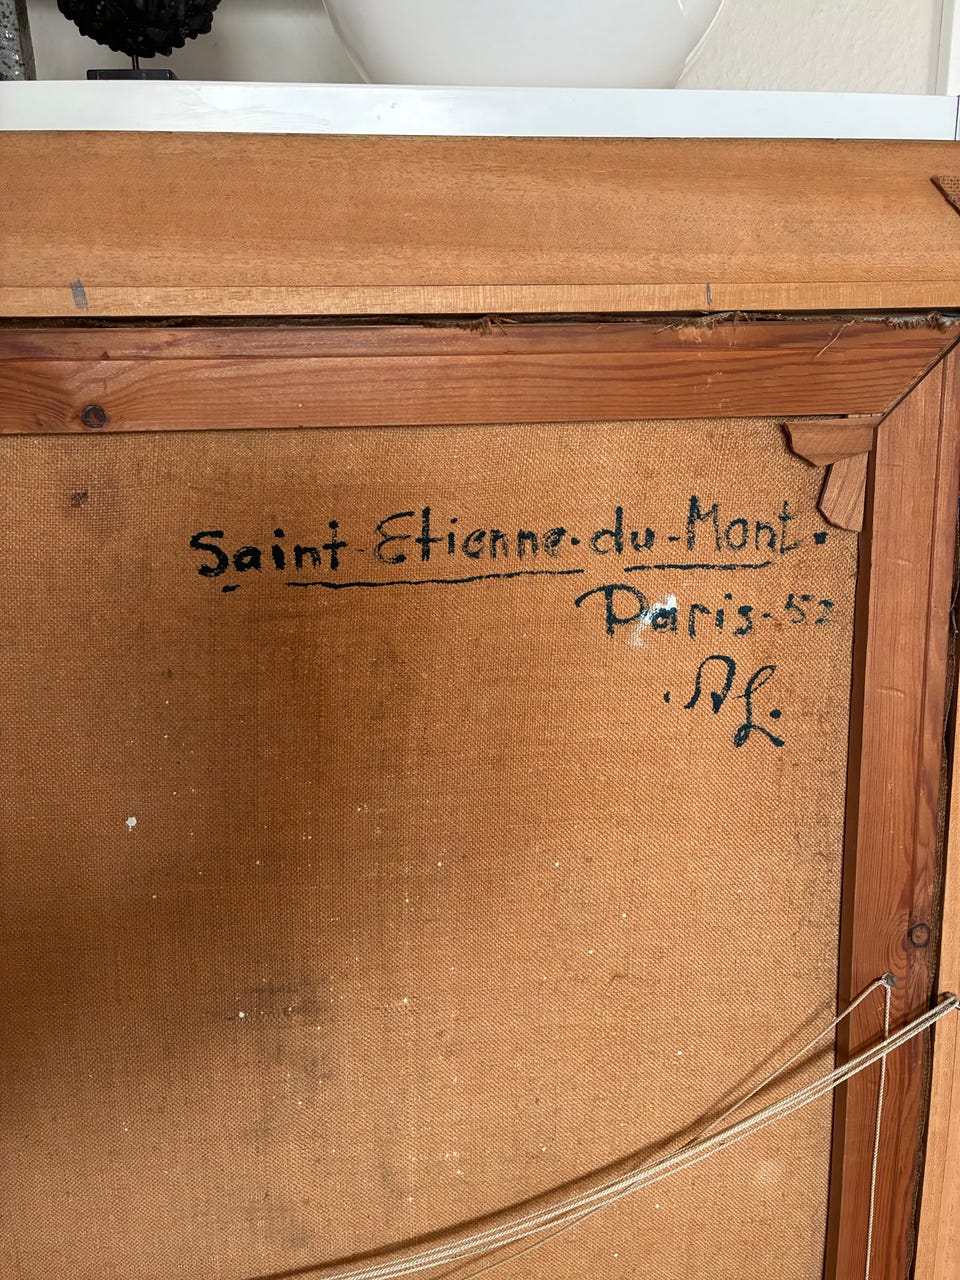 Saint-Etienne-du-Mont.
Paris-52
.AL.